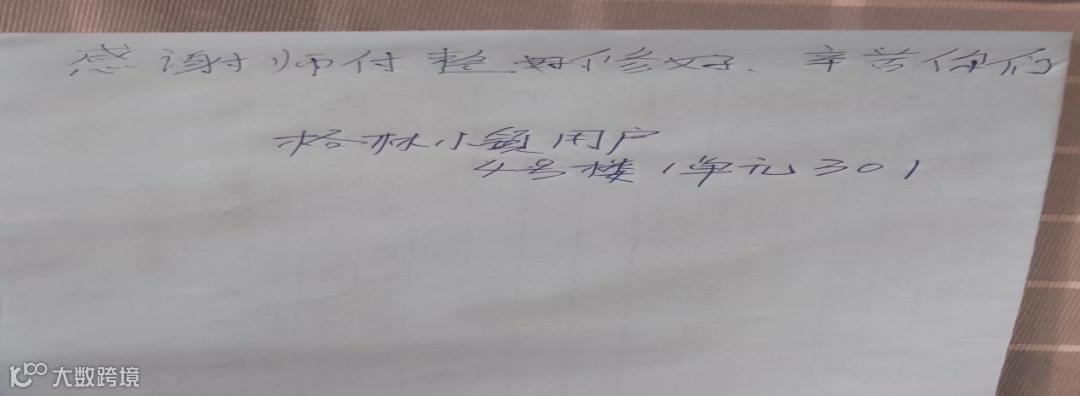 感谢师付整好修好、辛苦你们
格林小镇用户
4号楼1单元301
大数跨境